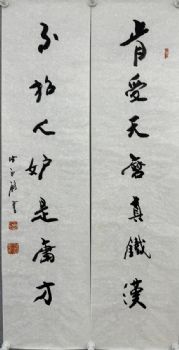 肯受天磨真鐵漢
不招人妒是庸才